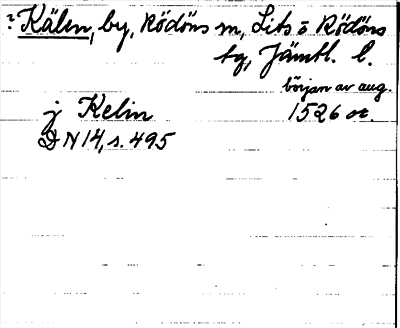 ? Kälen, by, Rödöns sn, Lits o Rödöns
tg, Jämtl. l.
början av aug.
j Kelin 1526 or.
DN 14, s. 495